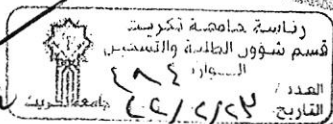 رئاسة جامعة تكريت
قسم شؤون الطلبة والتسجيل
الـــوارد
العدد / ٤٨٤
التاريخ
جامعة تكريت